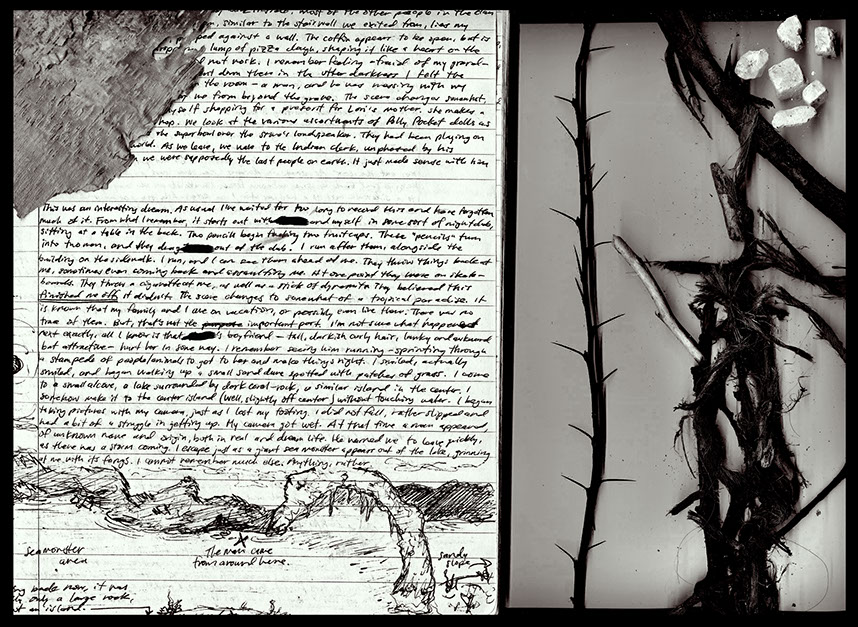 most of the other people in the
similar to the stairwell we exited from, lies my
ped against a wall. The coffin appears to be open, but is
lump of pizza dough, shaping it like a heart on the
not work. I remember feeling afraid of my
down them in the utter darkness I felt the
the room - a man, and he was messing with my
from beyond the grave. The scene changes somewhat,
myself shopping for a present for Loni's mother, she makes a
hop. We look at the various assortments of Polly Pocket dolls as
the superbowl over the store's loudspeaker. They had been playing on
world. As we leave, we wave to the Indian clerk, unphased by his
we were supposedly the last people on earth. It just made sense with him
This was an interesting dream. As usual I've waited for too long to record this and have forgotten
much of it. From what I remember, it starts out with and myself in some sort of nightclub,
sitting at a table in the back. Two pencils begin two fruitcups. These "pencils" turn
into two men, and they drag out of the club. I run after them, alongside the
building on the sidewalk. I run, and I can see them ahead of me. They throw things back at
me, sometimes even coming back and me. At one point they were on skate-
boards. They throw a cigarette at me, as well as a stick of dynamite. They believed this
finished me off, it didn't. The scene changes to somewhat of a tropical paradise. It
is known that my family and I are on vacation, or possibly even live there. There was no
trace of them. But, that's not the important part. I'm not sure what happened
next exactly, all I know is that 's boyfriend - tall, darkish curly hair, lanky and awkward
but attractive - hurt her in some way. I remember seeing him running - sprinting through
a stampede of people/animals to get to her and make things right. I smiled, actually
smiled, and began walking up a small sand dune spotted with patches of grass. I come
to a small alcove, a lake surrounded by dark coral-rock, a similar island in the center. I
somehow make it to the center island (well, slightly off center) without touching water. I began
taking pictures with my camera, just as I lost my footing. I did not fall, rather slipped and
had a bit of a struggle in getting up. My camera got wet. At that time a man appeared,
of unknown name and origin, both in real and dream life. He warned me to leave quickly,
as there was a storm coming. I escape just as a giant sea monster appears out of the lake, grinning
at me with its fangs. I cannot remember much else. Anything, rather.
Seamonster
area
The man came
from around here.
Sandy
slope
made now, it was
only a large rock,
not an island.